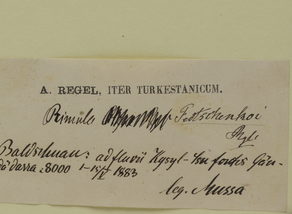 A. REGEL, ITER TURKESTANICUM.
Primula Fedtschenkoi
Rgl.
Baldschuan: ad fluvii Kysyl-su fontes
darra 8000 1883
leg. Mussa